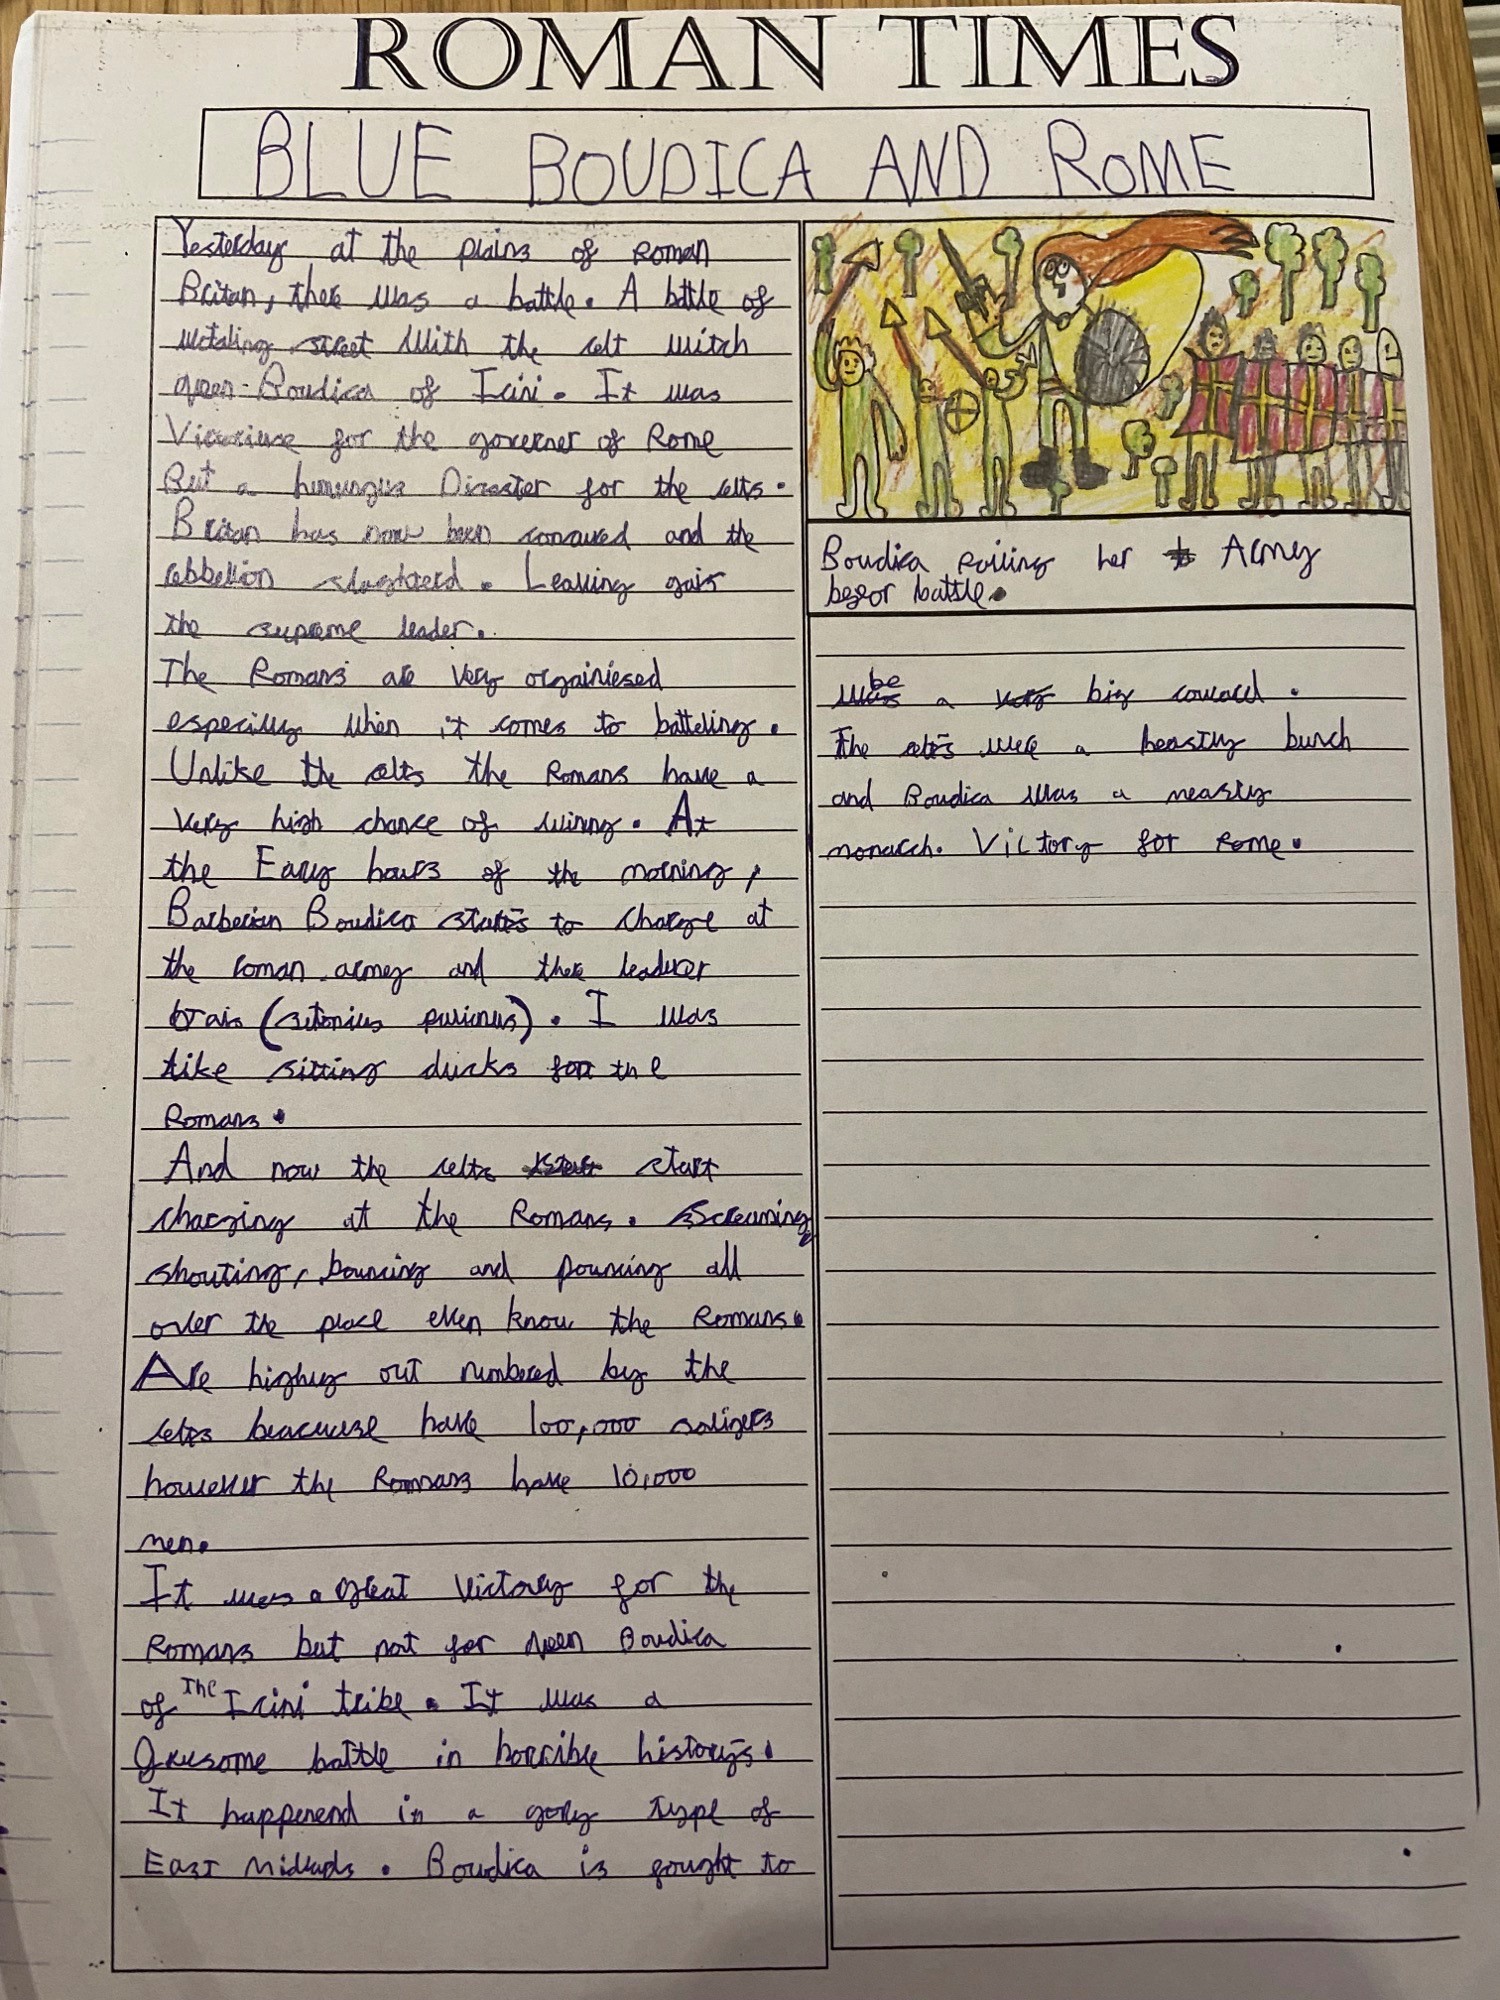 ROMAN TIMES
BLUE BOUDICA AND ROME
Yesterday at the plains of Roman
Britan, there was a battle. A battle of
wataling street With the celt witch
qeen Boudica of Icini. It was
for the governer of Rome
But a humungus Disaster for the celts.
Britan has now been conqured and the
rebbellion slaghterd. Leaving
the supreme leader.
The Romans are very orgainiesed
especilly when it comes to batteling.
Unlike the celts the Romans have a
very high chance of winng. At
the Eary hours of the morning,
Barberian Boudica starts to charge at
the roman armey and there leaderer
(sutonius). I was
like sitting ducks for the
Romans.
And now the celts start
charging at the Romans. Screaming,
shouting, bouncing and pouncing all
over the place even know the Romans.
Are highly out numbered by the
celts beacuase have 100,000
however the Romans have 10,000
men.
It was a great victory for the
Romans but not for qeen Boudica
of The Icini tribe. It was a
Gruesome battle in horrible historys.
It happenend in a gory type of
East Midlands. Boudica is fought to
Boudica her Army
befor battle.
be a big coward.
The celts were a beastly bunch
and Boudica was a neasty
monarch. Victory for Rome.